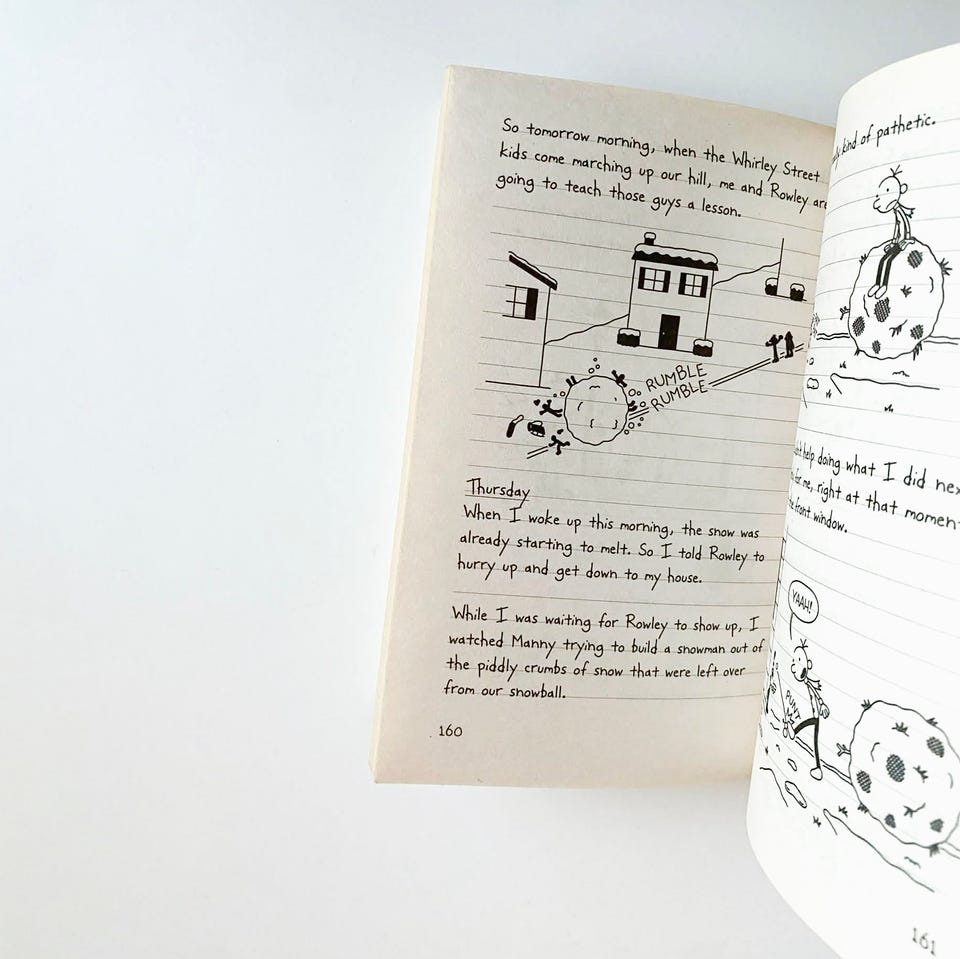 So tomorrow morning, when the Whirley Street
kids come marching up our hill, me and Rowley are
going to teach those guys a lesson.
RUMBLE
RUMBLE
Thursday
When I woke up this morning, the snow was
already starting to melt. So I told Rowley to
hurry up and get down to my house.
While I was waiting for Rowley to show up, I
watched Manny trying to build a snowman out of
the piddly crumbs of snow that were left over
from our snowball.
160
kind of pathetic.
help doing what I did
for me, right at that moment
front window.
YAAH!
PUNT
161